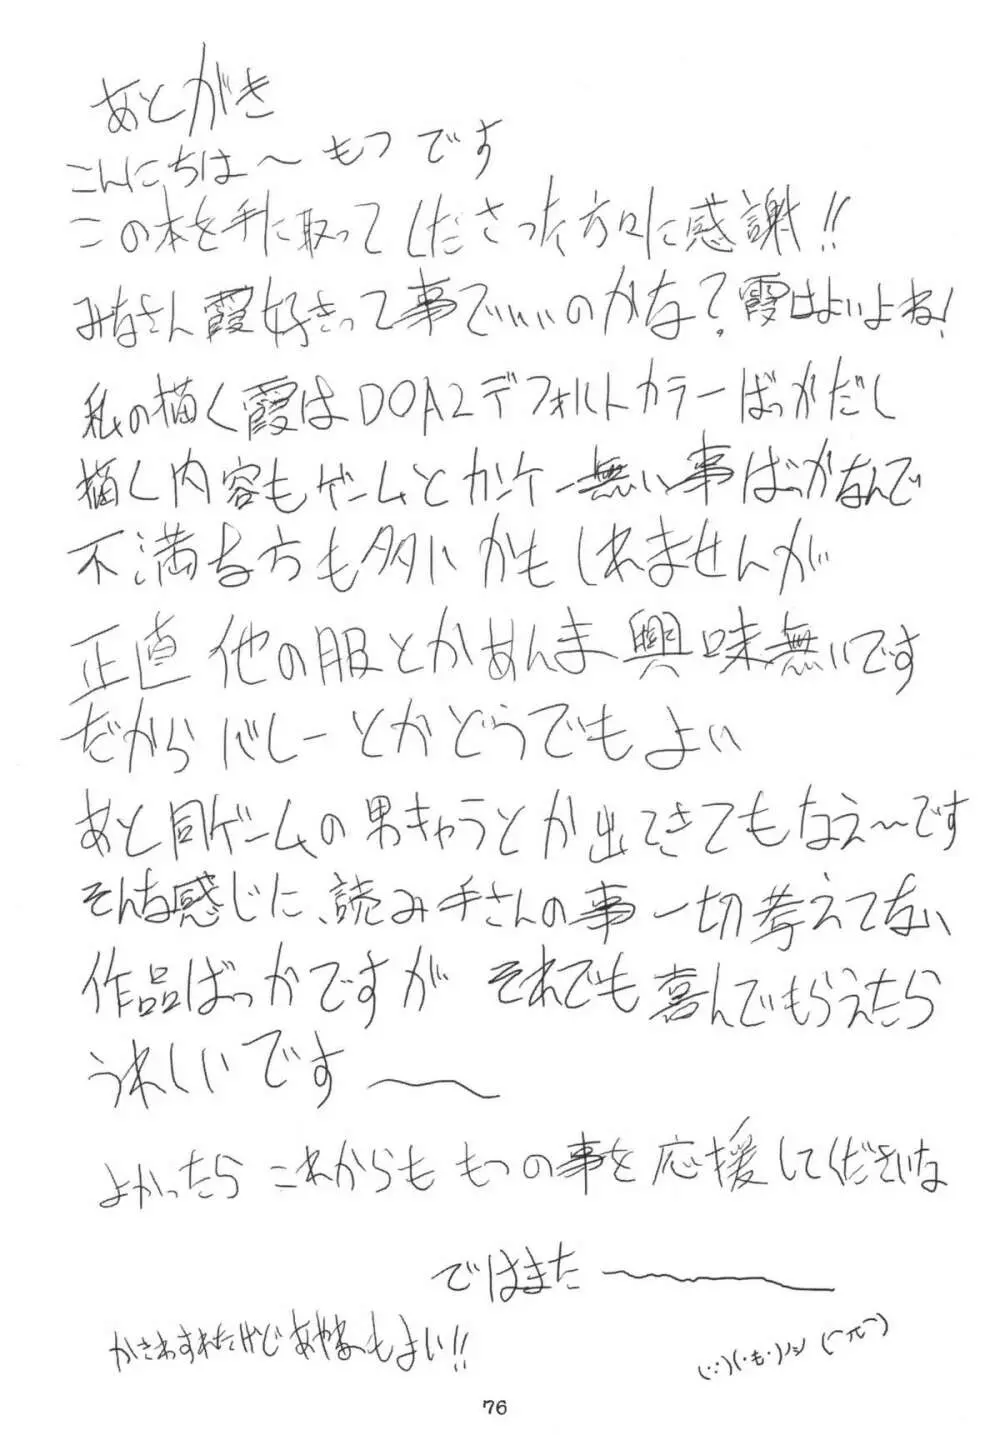 あとがき
こんにちは〜 もつです
この本を手に取ってくださった方々に感謝!!
みなさん霞好きって事でいいのかな?霞はよいよね!
私の描く霞はDOA2デフォルトカラーばっかだし
描く内容もゲームとカンケー無い事ばっかなんで
不満な方も多いかもしれませんが
正直 他の服とかあんま興味無いです
だからバレーとかどうでもよい
あと同ゲームの男キャラとか出てきてもなえ〜です
そんな感じに、読み手さんの事一切考えてない
作品ばっかですが それでも喜んでもらえたら
うれしいです〜
よかったら これからも もつの事を応援してくださいな
ではまた〜
かきわすれたけど あやねもよい!!
76